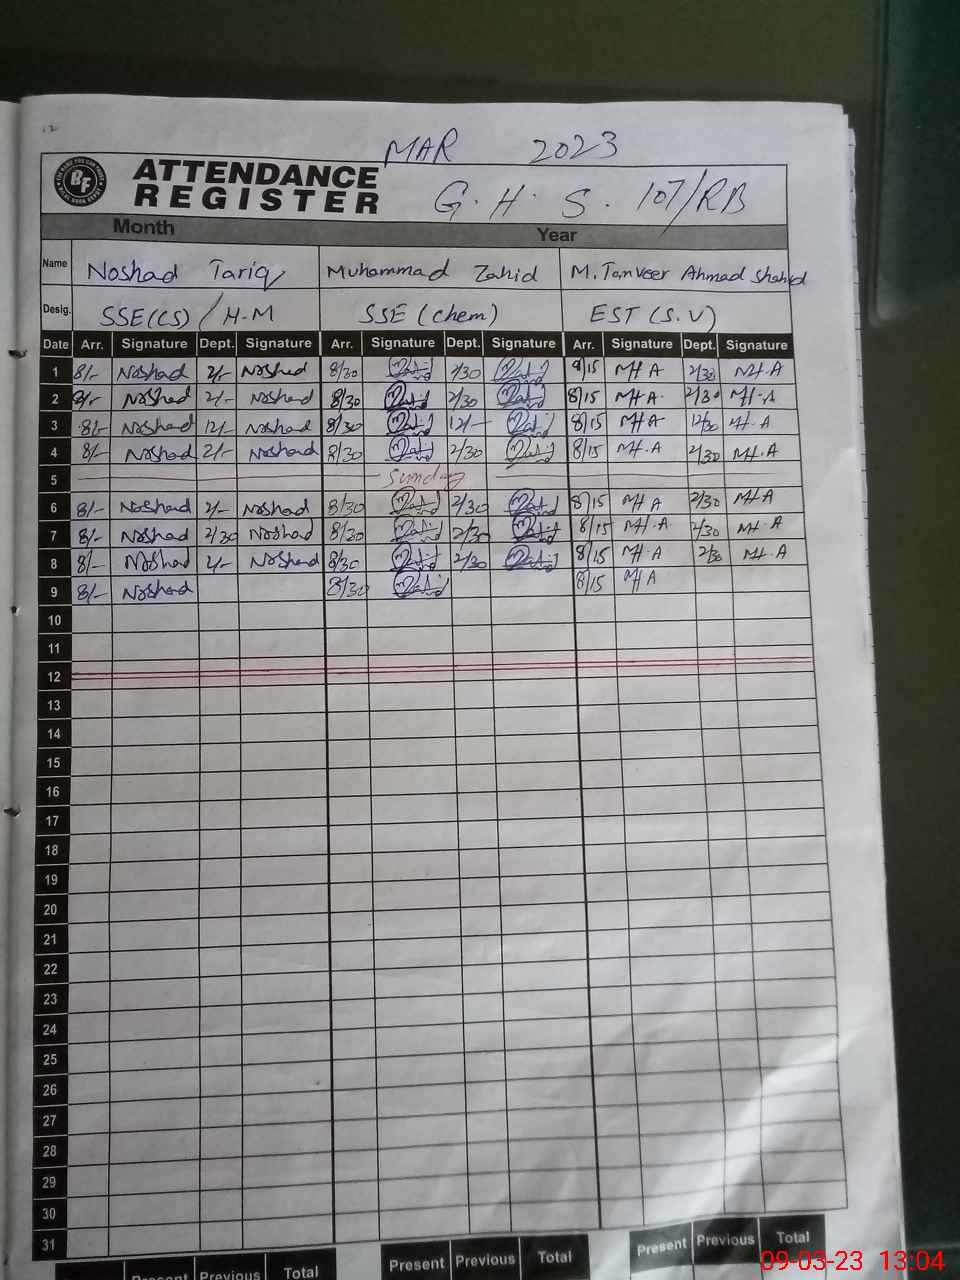 MAR 2023
BF
ATTENDANCE
REGISTER
G.H.S. 107/RB
Month Year
Name Noshad Tariq Muhammad Zahid M. Tanveer Ahmad Shahid
Desig. SSE(CS)/H.M SSE (chem) EST (S.V)
Date Arr. Signature Dept. Signature Arr. Signature Dept. Signature Arr. Signature Dept. Signature
1 8/- Noshad 2/- Noshad 8/30 2/30 8/15 MH A 2/30 MH.A
2 8/- Noshad 2/- Noshad 8/30 2/30 8/15 MH A. 2/30 MH.A
3 8/- Noshad 12/- Noshad 8/30 12/- 8/15 MH A 12/30 MH.A
4 8/- Noshad 2/- Noshad 8/30 2/30 8/15 MH.A 2/30 MH.A
5 Sunday
6 8/- Noshad 2/- Noshad 8/30 2/30 8/15 MH A 2/30 MH A
7 8/- Noshad 2/30 Noshad 8/30 2/30 8/15 MH.A 2/30 MH.A
8 8/- Noshad 2/- Noshad 8/30 2/30 8/15 MH.A 2/30 MH.A
9 8/- Noshad 8/30 8/15 MH A
10
11
12
13
14
15
16
17
18
19
20
21
22
23
24
25
26
27
28
29
30
31
Present Previous Total Present Previous Total Present Previous Total
09-03-23 13:04